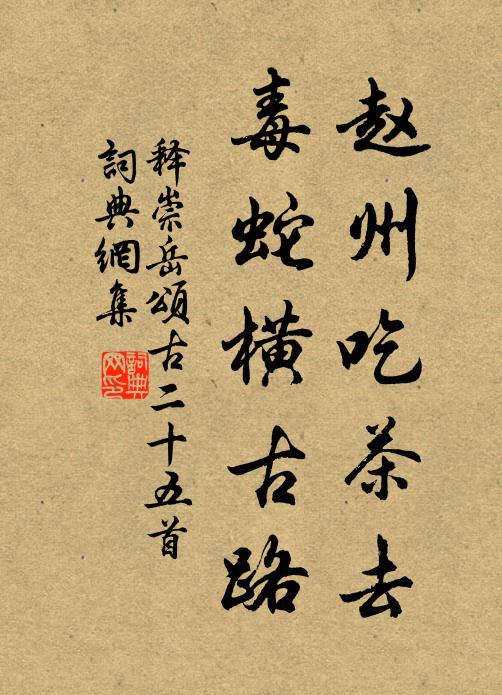 赵州吃茶去
毒蛇横古路
释崇岳颂古二十五首
詞典網集
詞典网印